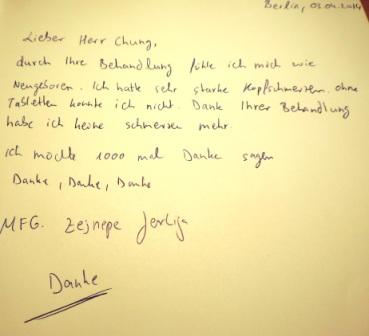 Berlin, 03.04.2014
Lieber Herr Chung,
durch Ihre Behandlung fühle ich mich wie
Neugeboren. Ich hatte sehr starke Kopfschmerzen. ohne
Tabletten konnte ich nicht. Dank Ihrer Behandlung
habe ich keine schmerzen mehr.
ich möchte 1000 mal Danke sagen
Danke, Danke, Danke
MFG. Zejnepe
Danke